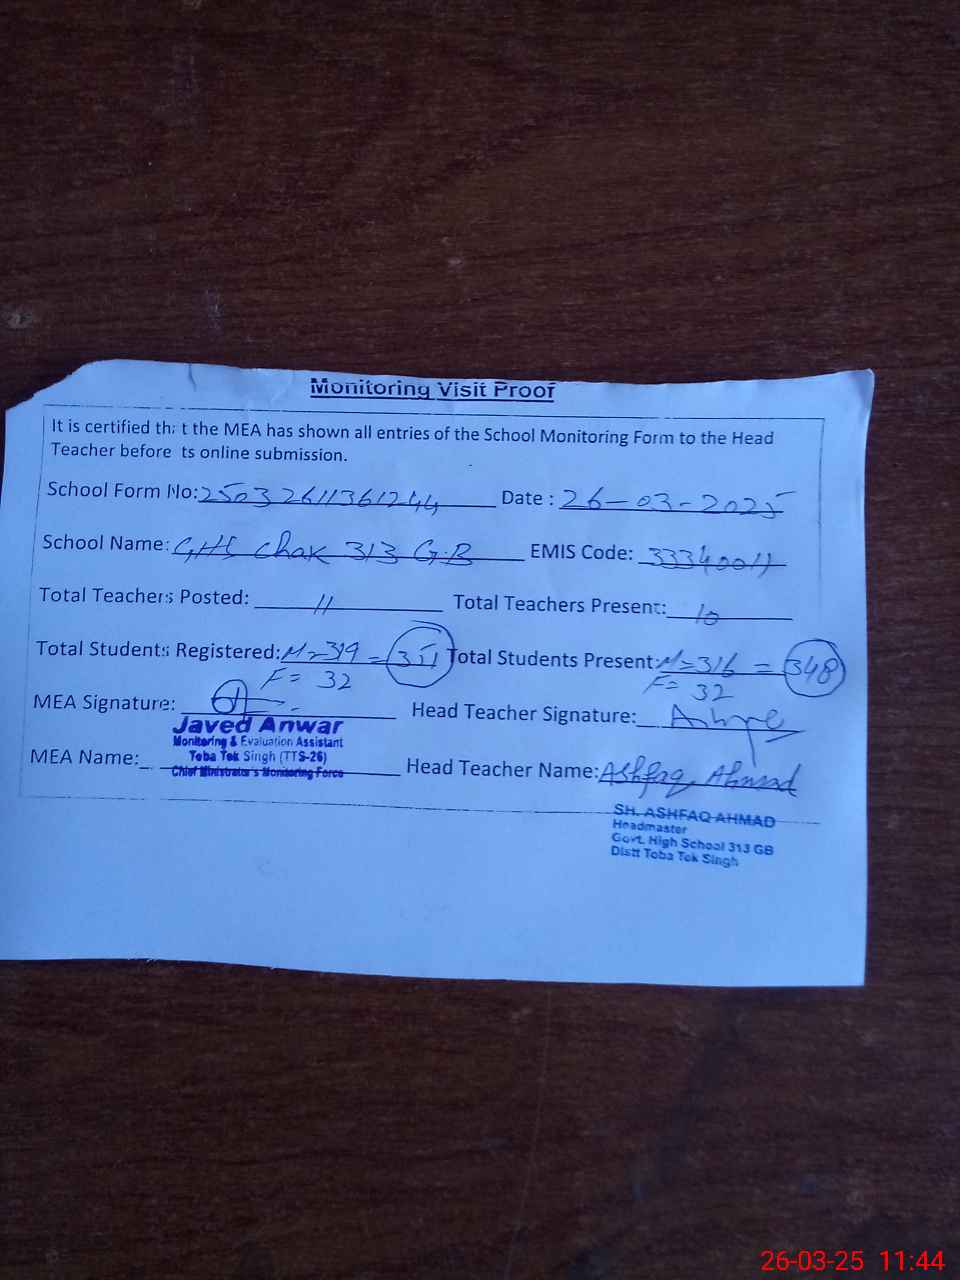 Monitoring Visit Proof
It is certified that the MEA has shown all entries of the School Monitoring Form to the Head
Teacher before its online submission.
School Form No: 25032611361244 Date : 26-03-2025
School Name: GHS Chak 313 G.B EMIS Code: 33340011
Total Teachers Posted: 11 Total Teachers Present: 10
Total Students Registered: M=319 = 351 Total Students Present: M=316 = 348
F= 32 F= 32
MEA Signature: Head Teacher Signature:
Javed Anwar
Monitoring & Evaluation Assistant
Toba Tek Singh (TTS-26)
Chief Ministrator's Monitoring Force
MEA Name: Head Teacher Name: Ashfaq Ahmad
SH. ASHFAQ AHMAD
Headmaster
Govt. High School 313 GB
Distt Toba Tek Singh
26-03-25 11:44